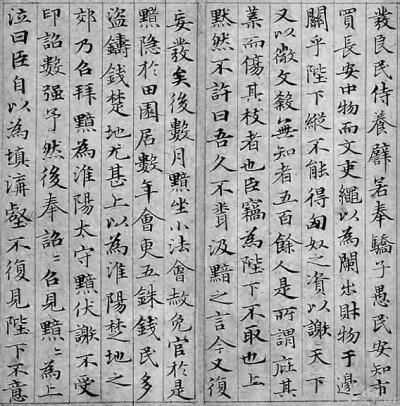 發良民侍養譬若奉驕子愚民安知市
買長安中物而文吏繩以為闌出財物于邊
關乎陛下縱不能得匈奴之資以謝天下
又以微文殺無知者五百餘人是所謂庇其
葉而傷其枝者也臣竊為陛下不取也上
默然不許曰吾久不聞汲黯之言今又復
妄發矣後數月黯坐小法會赦免官於是
黯隱於田園居數年會更五銖錢民多
盜鑄錢楚地尤甚上以為淮陽楚地之
郊乃召拜黯為淮陽太守黯伏謝不受
印詔數强予然後奉詔〻召見黯〻為上
泣曰臣自以為填溝壑不復見陛下不意